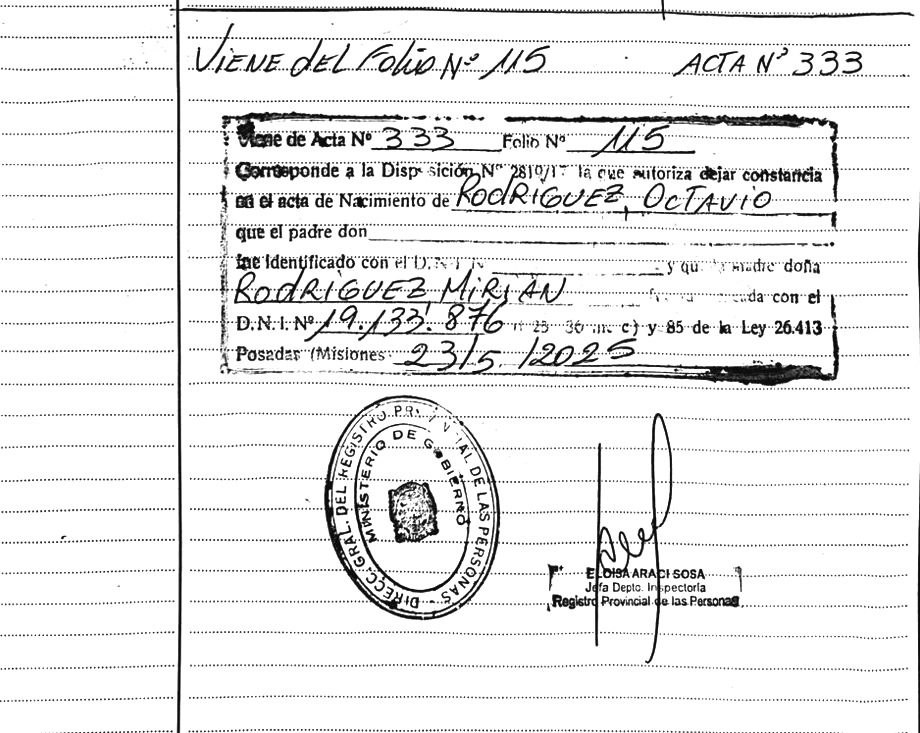 VIENE DEL FOLIO Nº 115 ACTA Nº 333
Viene de Acta Nº 333 Folio Nº 115
Corresponde a la Disposición Nº 2810/17 la que autoriza dejar constancia
en el acta de Nacimiento de RODRIGUEZ, OCTAVIO
que el padre don
fue Identificado con el D.N.I. Nº y que la madre doña
RODRIGUEZ MIRIAN con el
D.N.I. Nº 19.133.876 36 inc c) y 85 de la Ley 26.413
Posadas (Misiones 23/5/2025
DIRECC. GRAL. DEL REGISTRO PROVINCIAL DE LAS PERSONAS
MINISTERIO DE GOBIERNO
ELOISA ARACI SOSA
Jefa Depto. Inspectoría
Registro Provincial de las Personas